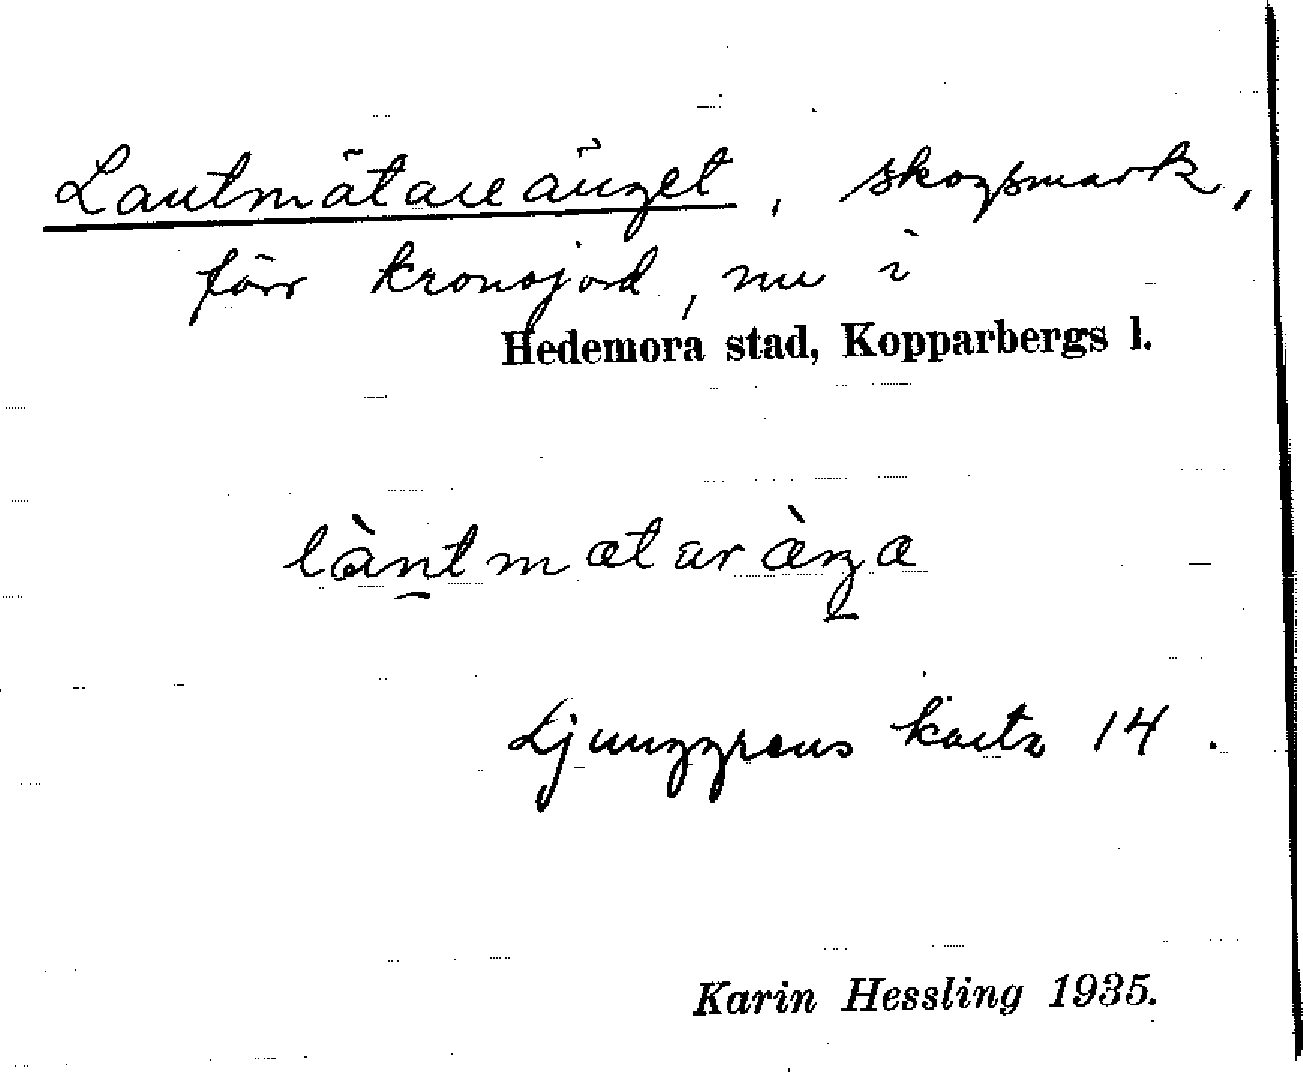 Lantmätareänget, skogsmark,
förr kronojord, nu i
Hedemora stad, Kopparbergs l.
Ljunggrens karta 14.
Karin Hessling 1935.